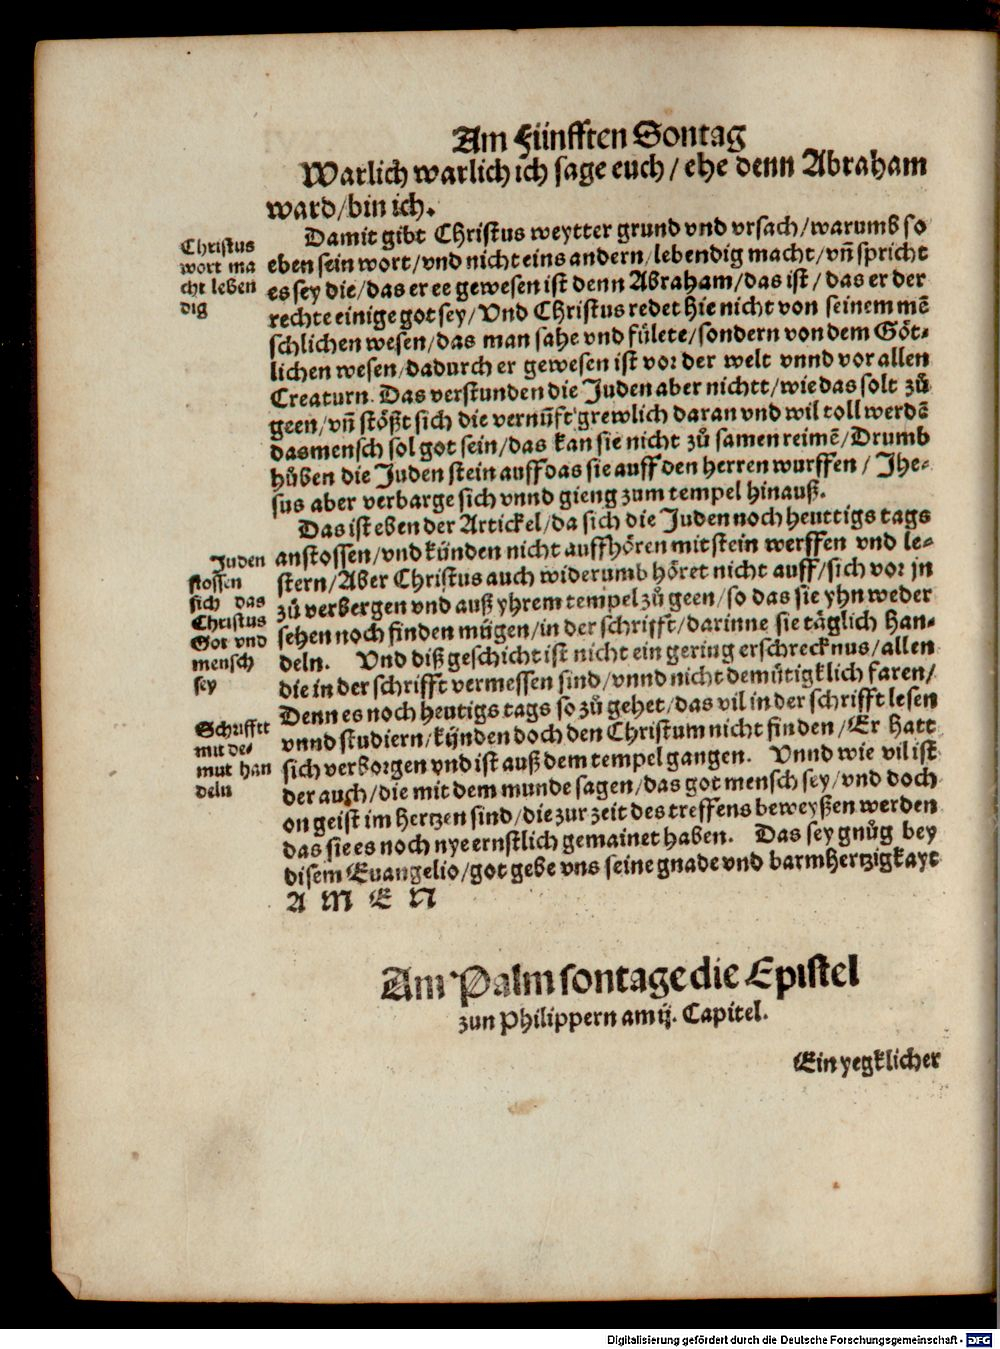 Am Fünfften Sontag
Warlich warlich ich sage euch / ehe denn Abraham
ward / bin ich.
Christus
wort ma
cht leben
dig
Damit gibt Christus weytter grund vnd vrsach / warumb so
eben sein wort / vnd nicht eins andern / lebendig macht / vñ spricht
es sey die / das er ee gewesen ist denn Abraham / das ist / das er der
rechte einige got sey / Vnd Christus redet hie nicht von seinem mẽ
schlichen wesen / das man sahe vnd fülete / sondern von dem Göt-
lichen wesen / dadurch er gewesen ist vor der welt vnnd vor allen
Creaturn. Das verstunden die Juden aber nichtt / wie das solt zů
geen / vñ stößt sich die vernũft grewlich daran vnd wil toll werdẽ
das mensch sol got sein / das kan sie nicht zů samen reimẽ / Drumb
hůben die Juden stein auff das sie auff den herren wurffen / Jhe-
sus aber verbarge sich vnnd gieng zum tempel hinauß.
Juden
stossen
sich das
Christus
Got vnd
mensch
sey
Das ist eben der Artickel / da sich die Juden noch heuttigs tags
anstossen / vnd künden nicht auffhören mit stein werffen vnd le-
stern / Aber Christus auch widerumb höret nicht auff / sich vor jn
zů verbergen vnd auß yhrem tempel zů geen / so das sie yhn weder
sehen noch finden mügen / in der schrifft / darinne sie täglich han-
deln. Vnd diß geschicht ist nicht ein gering erschrecknus / allen
die in der schrifft vermessen sind / vnnd nicht demütigklich faren /
Schrifftt
mit de-
mut han
deln
Denn es noch heutigs tags so zů gehet / das vil in der schrifft lesen
vnnd studiern / künden doch den Christum nicht finden / Er hatt
sich verborgen vnd ist auß dem tempel gangen. Vnnd wie vil ist
der auch / die mit dem munde sagen / das got mensch sey / vnd doch
on geist im hertzen sind / die zur zeit des treffens beweyßen werden
das sie es noch nye ernstlich gemainet haben. Das sey gnůg bey
disem Euangelio / got gebe vns seine gnade vnd barmhertzigkayt
A M E N
Am Palmsontage die Epistel
zun Philippern am ij. Capitel.
Ein yegklicher
Digitalisierung gefördert durch die Deutsche Forschungsgemeinschaft - DFG